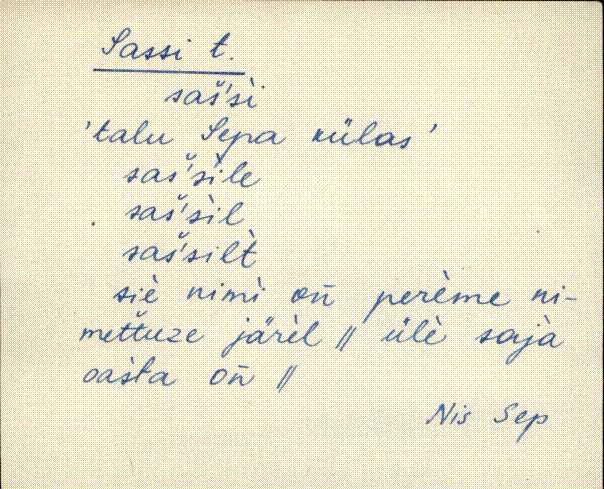 Sassi t.
saš'sì
'talu Sepa külas'
saš'sìle
saš'sìl
saš'silt̀
siè nimì on̄ perème ni-
mettuze järèl // ülè sajà
oàsta on̄ //
Nis Sep